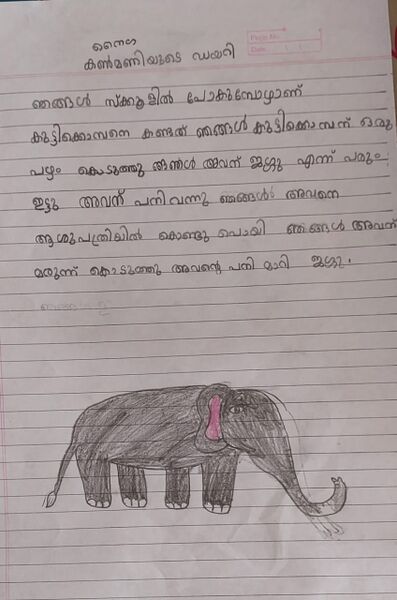 Page No.
Date
നൈഗ
കൺമണിയുടെ ഡയറി
ഞങ്ങൾ സ്ക്കൂളിൽ പോകുമ്പോഴാണ്
കുട്ടിക്കൊമ്പനെ കണ്ടത് ഞങ്ങൾ കുട്ടിക്കൊമ്പന് ഒരു
പഴം കൊടുത്തു ഞങ്ങൾ അവന് ജഗ്ഗു എന്ന്
ഇട്ടു അവന് പനി വന്നു ഞങ്ങൾ അവനെ
ആശുപത്രിയിൽ കൊണ്ടു പൊയി ഞങ്ങൾ അവന്
മരുന്ന് കൊടുത്തു അവൻ്റെ പനി മാറി ജഗ്ഗു.